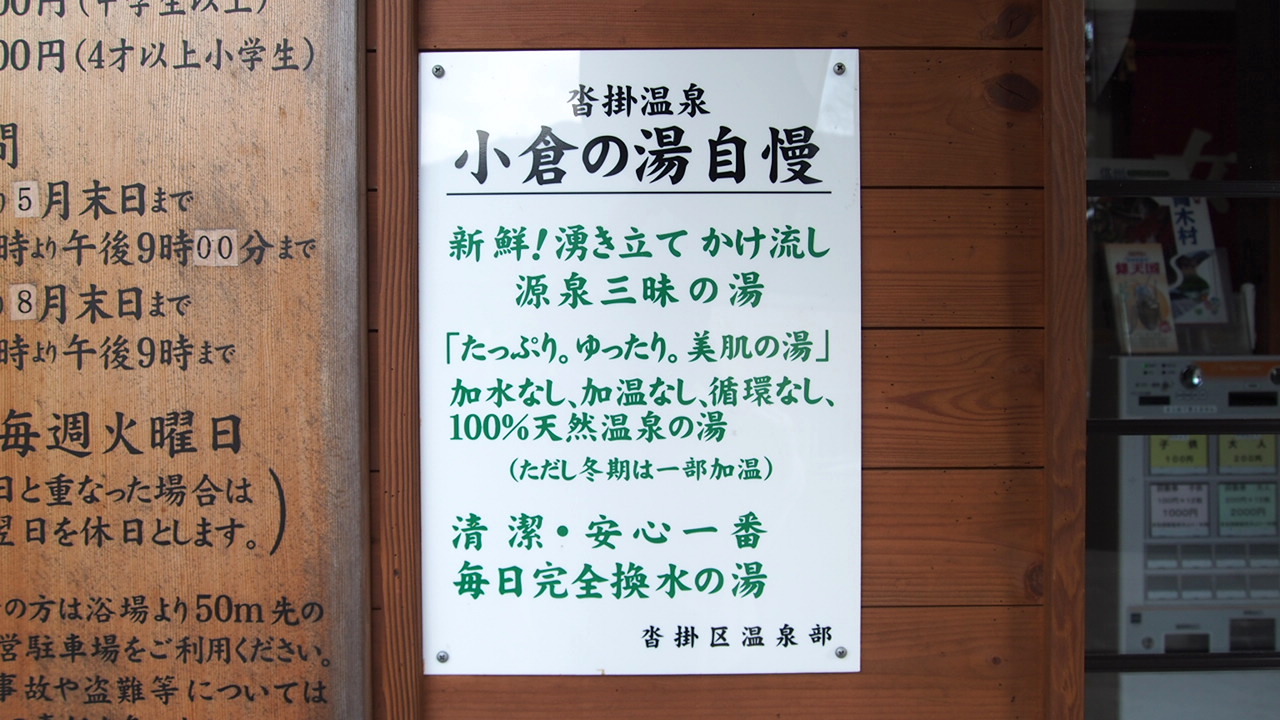 00円(中学生以上)
00円(4才以上小学生)
間
5月末日まで
時より午後9時00分まで
8月末日まで
時より午後9時まで
毎週火曜日
日と重なった場合は
翌日を休日とします。)
の方は浴場より50m先の
営駐車場をご利用ください。
事故や盗難等については
沓掛温泉
小倉の湯自慢
新鮮!湧き立て かけ流し
源泉三昧の湯
「たっぷり。ゆったり。美肌の湯」
加水なし、加温なし、循環なし、
100%天然温泉の湯
(ただし冬期は一部加温)
清潔・安心一番
毎日完全換水の湯
沓掛区温泉部
青木村
子供
100円
大人
200円
1000円
2000円